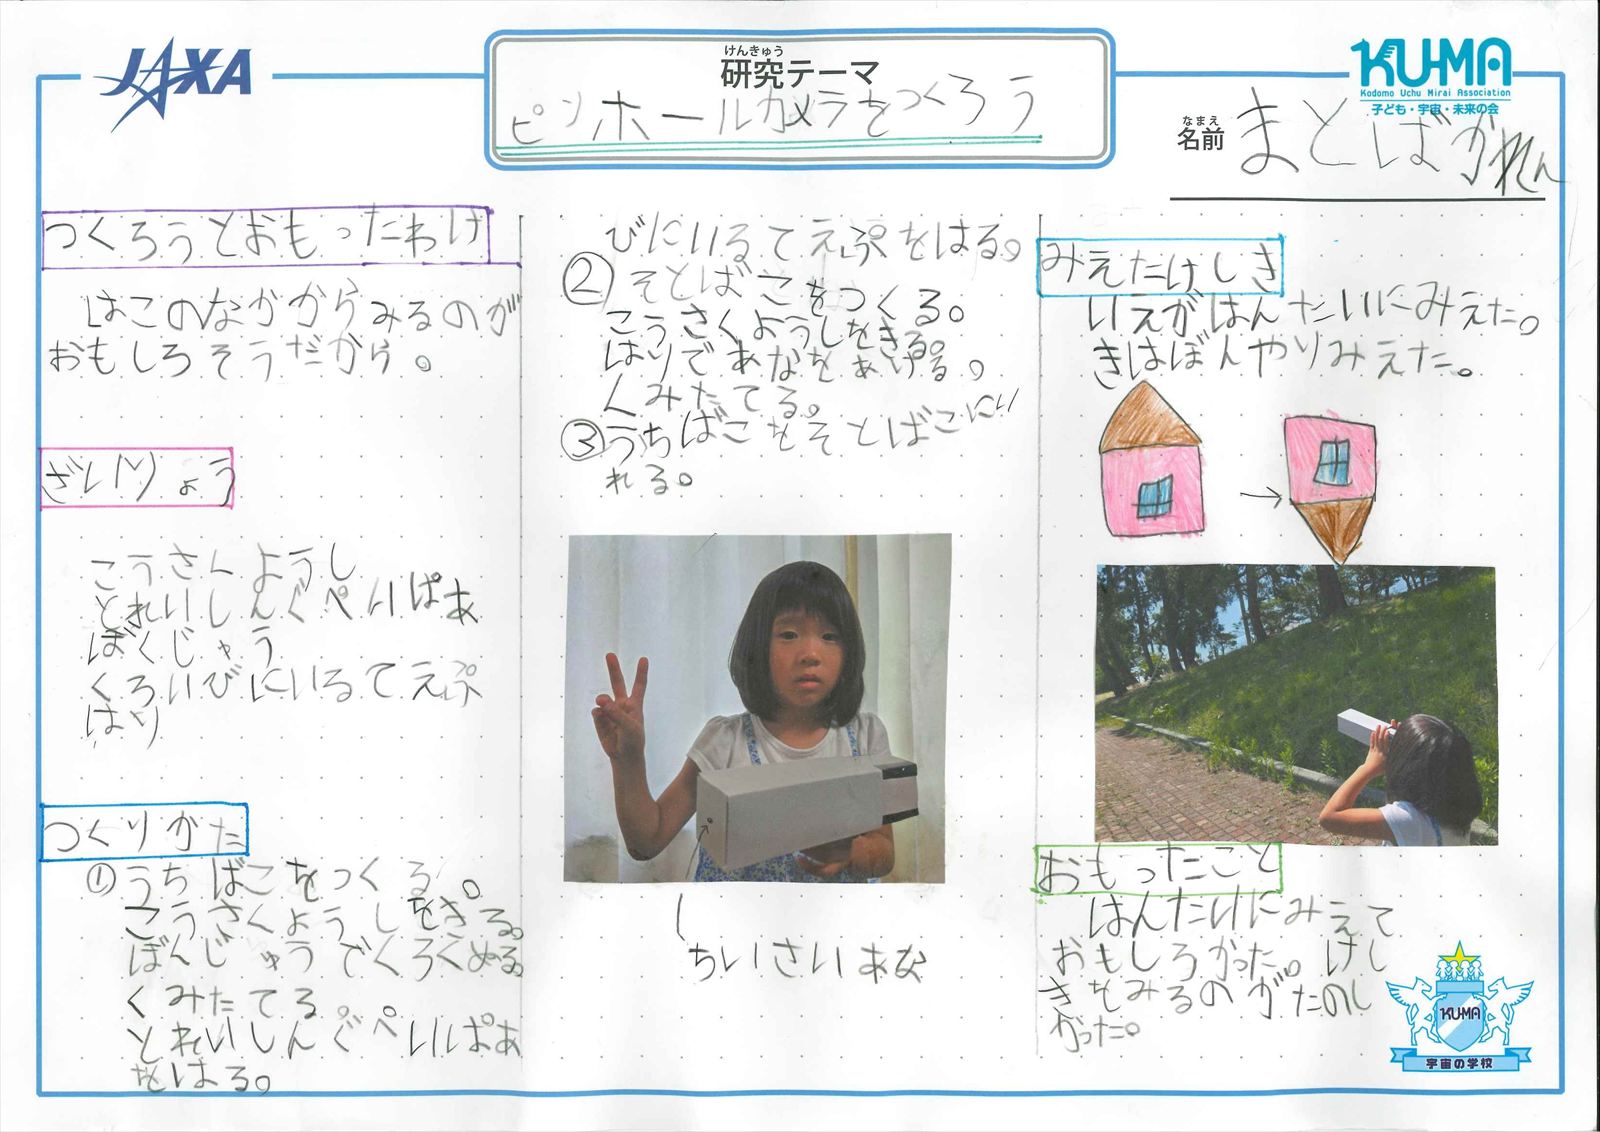 JAXA
けんきゅう
研究テーマ
ピンホールカメラをつくろう
KU-MA
Kodomo Uchu Mirai Association
子ども・宇宙・未来の会
なまえ
名前 まとばかれん
つくろうとおもったわけ
はこのなかからみるのが
おもしろそうだから。
ざいりょう
こうさくようし
とれいしんぐぺいぱあ
ぼくじゅう
くろいびにいるてえぷ
はり
つくりかた
①うちばこをつくる。
こうさくようしをきる。
ぼんじゅうでくろくぬる。
くみたてる。
とれいしんぐぺいぱあ
をはる。
びにいるてえぷをはる。
②そとばこをつくる。
こうさくようしをきる。
はりであなをあける。
くみたてる。
③うちばこをそとばこにい
れる。
ちいさいあな
みえたけしき
いえがはんたいにみえた。
きはぼんやりみえた。
おもったこと
はんたいにみえて
おもしろかった。けし
きをみるのがたのし
かった。
KU-MA
宇宙の学校